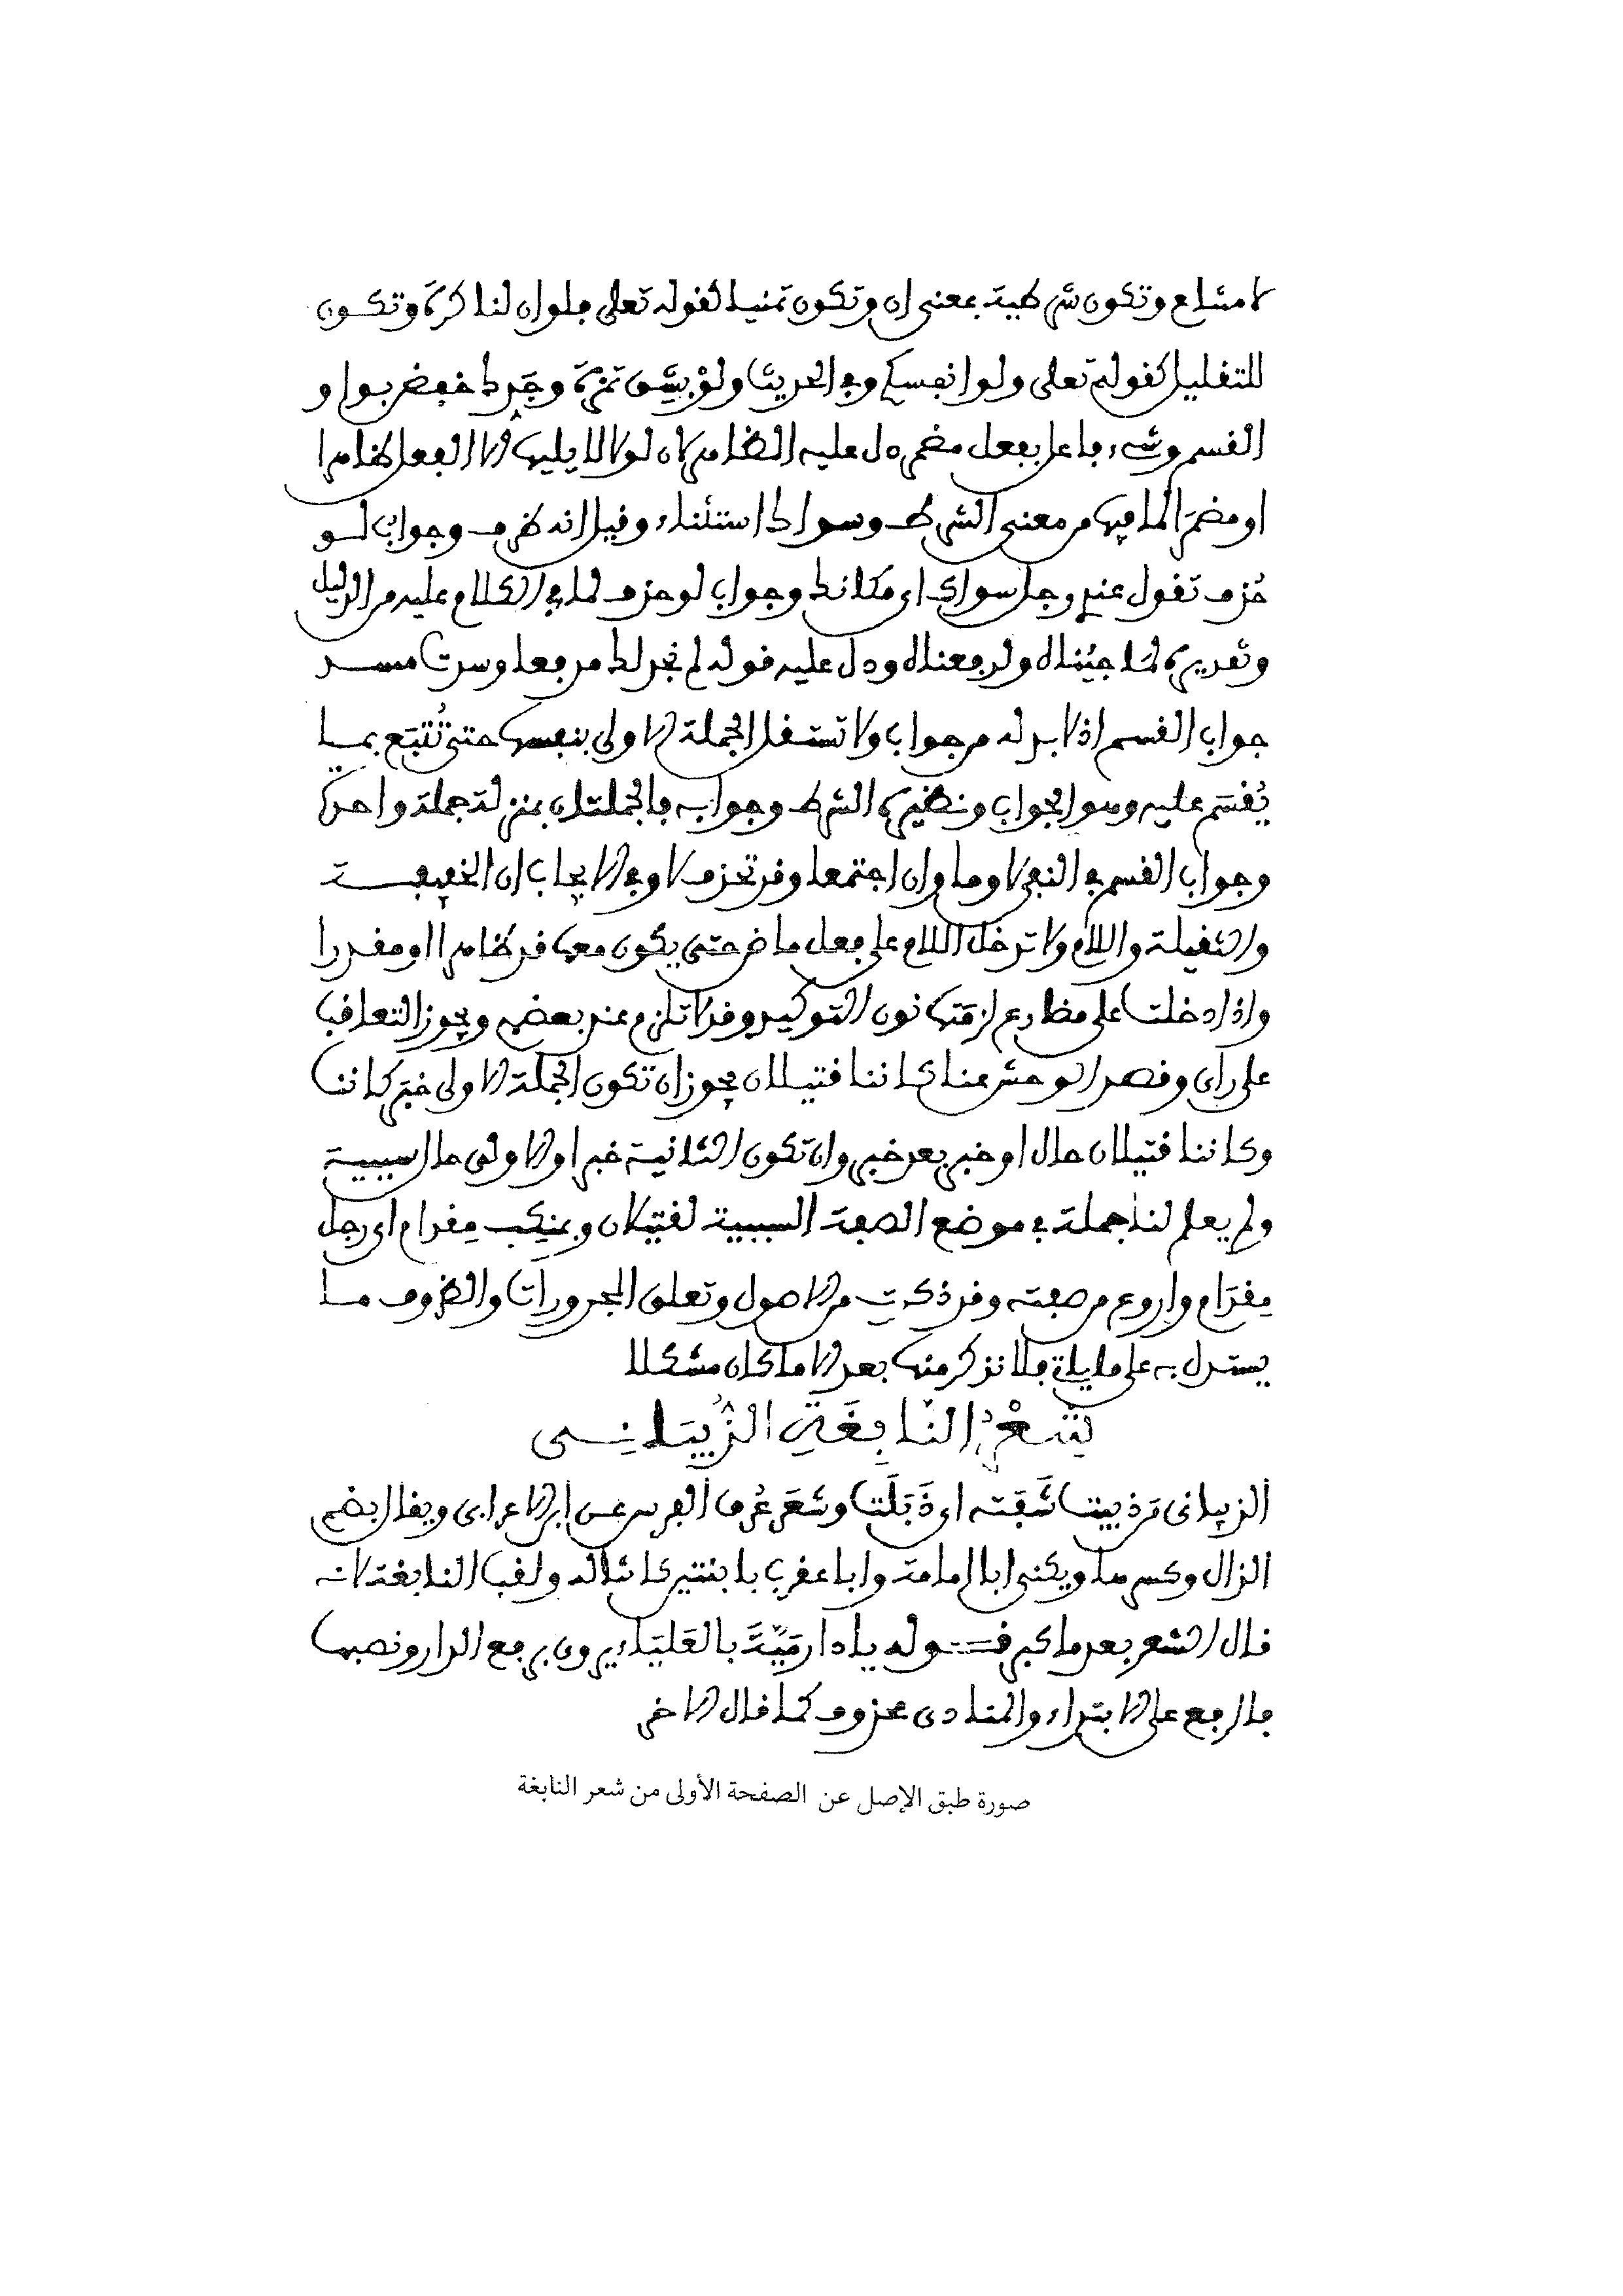 لامتناع وتكون شرطية بمعنى ان وتكون تمنيا كقوله تعلى فلو ان لنا كرة وتكون
للتقليل كقوله تعلى ولو انفسكم وفي الحديث ولو بشق تمرة وجدك خفض بواو
القسم وشيء فاعل بفعل مضمر دل عليه الظاهر لان لو لا يليها الا الفعل ظاهرا
او مضمرا لما فيها من معنى الشرط وسواك استثناء وقيل انه ظرف وجواب لو
حذف تقول عندي رجل سواك اي مكانك وجواب لو حذف لما في الكلام عليه من الدليل
وتقديره لما جئناه ولدفعناه ودل عليه قوله لم نجد لك مدفعا وسدت مسد
جواب القسم اذ لا بد له من جواب ولا تستقل الجملة الاولى بنفسها حتى تتبع بما
يقسم عليه وهو الجواب ونظيره الشرط وجوابه فالجملتان بمنزلة جملة واحدة
وجواب القسم في النفي لا وما وان اجتمعا وقد تحذف لا وفي الايجاب ان الخفيفة
والثقيلة واللام ولا تدخل اللام على فعل ماض حتى يكون معها قد ظاهرا او مقدرا
واذا دخلت على مضارع لزمتها نون التوكيد وقد لا تلزم عند بعضهم ويجوز التعاقب
على راي وقصر الوحش عنا كاننا قتيلان يجوز ان تكون الجملة الاولى خبر كاننا
وكاننا قتيلان حال او خبر بعد خبر وان تكون الثانية خبرا والاولى حال سببية
ولم يعلم لنا جملة في موضع الصفة السببية لقتيلان وبمنكب مقدام اي رجل
مقدام واروع من صفته وقد ذكرت من الاصول وتعلق المجرورات والظروف ما
يستدل به على ما ياتي فلا نذكر منها بعد الا ما كان مشكلا
شعر النابغة الذبياني
الذبياني من ذبيت شفته اي ذبلت وشعر عرف الفرس عن ابن الاعرابي ويقال بضم
الذال وكسرها ويكنى ابا امامة وابا عقرب بابنتين كانتا له ولقب النابغة لانه
قال الشعر بعد ما كبر قوله يا دار مية بالعلياء يروى برفع الدار ونصبها
فالرفع على الابتداء والمنادى محذوف كما قال الاخر
صورة طبق الإصل عن الصفحة الأولى من شعر النابغة